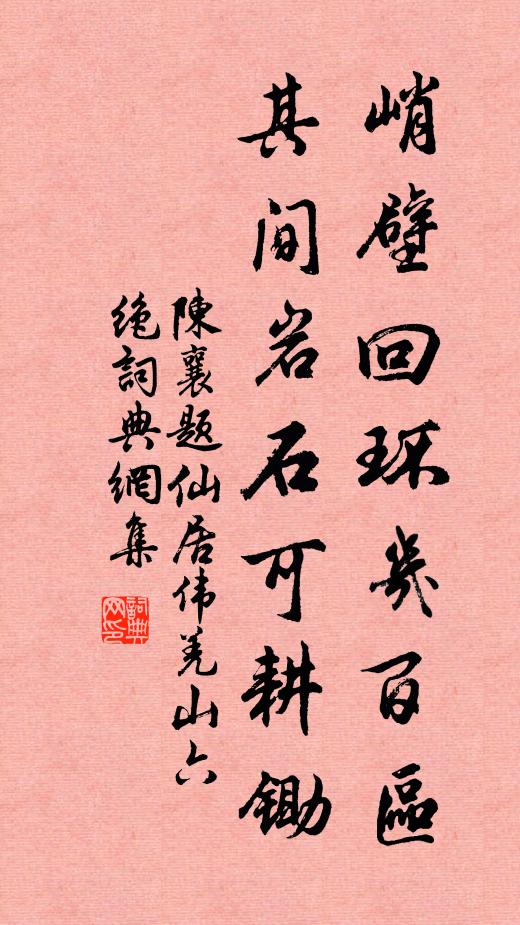 峭壁回环幾百區
其间岩石可耕锄
陳襄题仙居伟羌山六
绝詞典網集
詞典网印